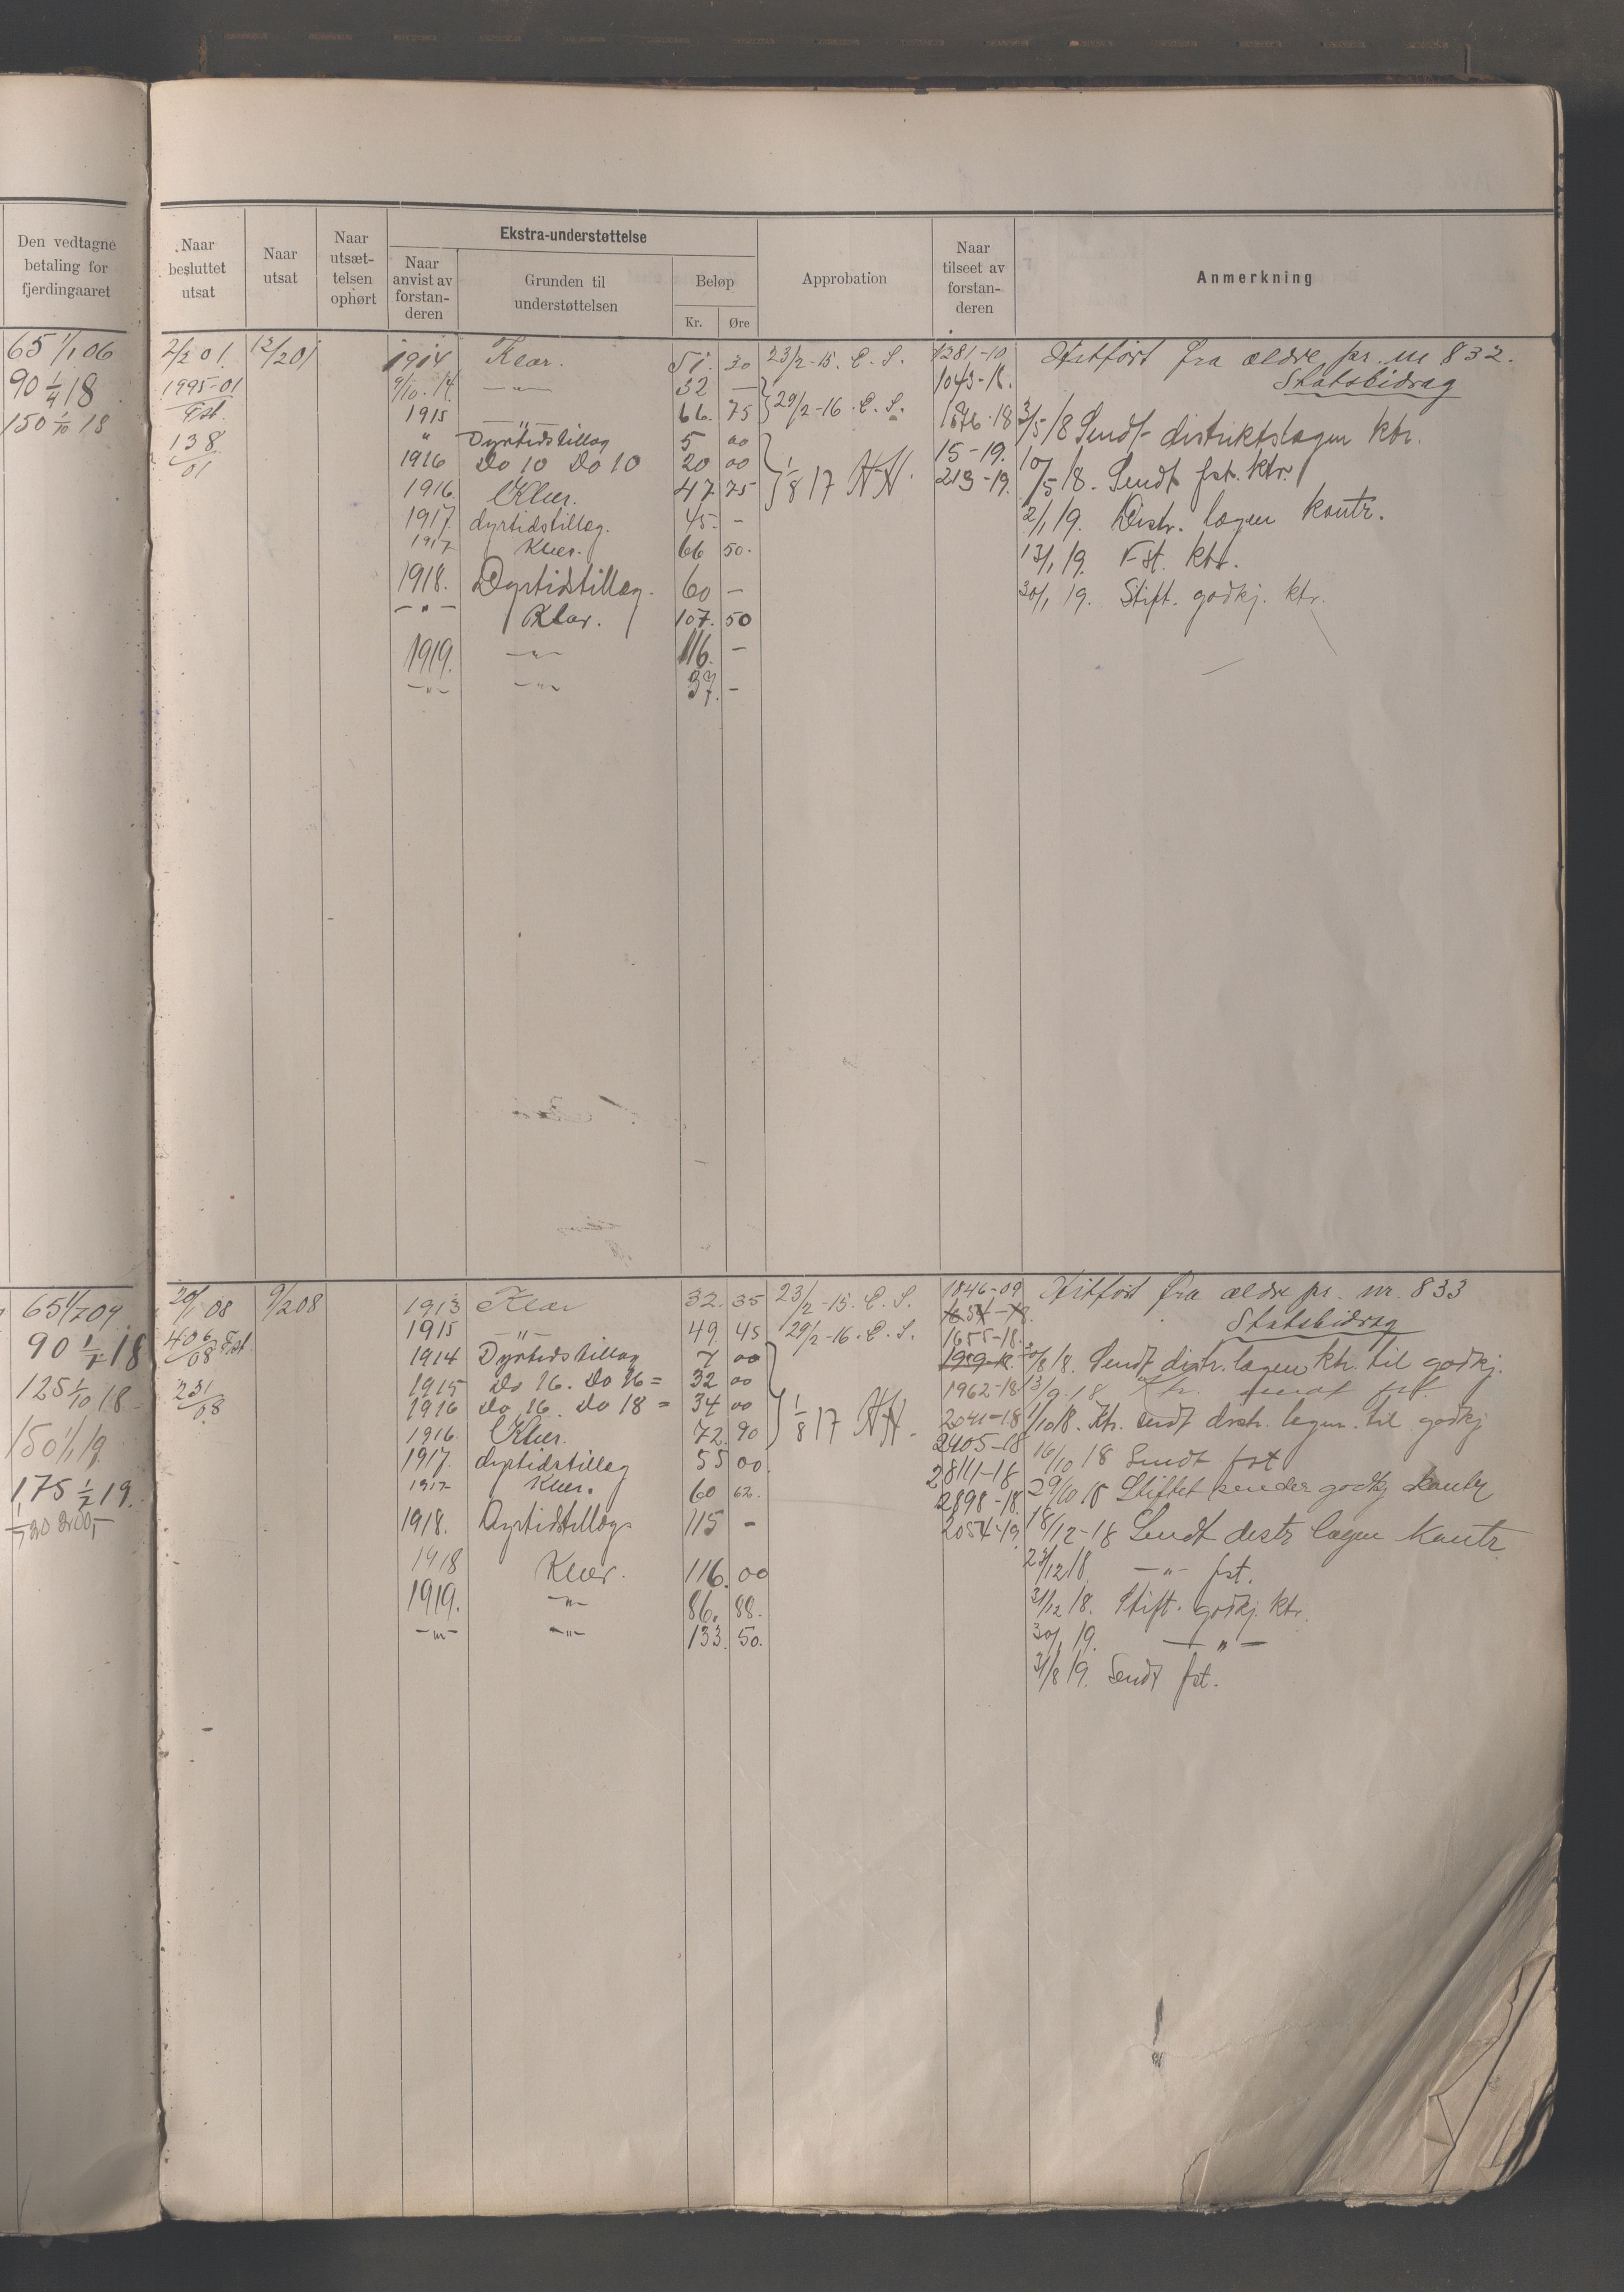 Den vedtagne betaling for fjerdingaaret
Naar besluttet utsat
Naar utsat
Naar utsæt-telsen ophørt
Ekstra-understøttelse
Naar anvist av forstan-deren
Grunden til understøttelsen
Beløp
Kr. Øre
Approbation
Naar tilseet av forstan-deren
Anmerkning
65 1/1 06 2/2 01. 12/2 01 1914 Klær. 51. 30 23/2-15. E. S. 1281-10 Hitført fra ældre pr. nr 832.
90 1/4 18 1995-01 9/10-14. —"— 32 — 1043-18. Statsbidrag
150 1/10 18 Fst. 1915 —"— 66. 75 29/2-16. E. S. 1876-18 3/5 18 Sendt distriktslægen ktr.
138 " Dyrtidstillæg 5 00 15-19.
01 1916 Do 10 Do 10 20 00 1/8 17 213-19. 10/5 18. Sendt fst. ktr.
1916 Klær. 47 75
1917. dyrtidstillæg. 45. - 2/1 19. Distr. lægen kontr.
1917 Klær. 66 50. 13/1 19. Fst. ktr.
1918. Dyrtidstillæg. 60 — 30/1 19. Stift. godkj. ktr.
—"— Klær. 107. 50
1919. —"— 116. —
—"— —"— 37. -
65 1/7 09. 20/1 08 9/2 08 1913 Klær 32. 35 23/2-15. E. S. 1846-09 Hitført fra ældre pr. nr. 833
1915 —"— 49. 45 29/2-16. E. S. 1655-18. Statsbidrag
90 1/7 18 406/08 Fst. 1914 Dyrtidstillæg 7 00 30/8 18. Sendt distr. lægen ktr. til godkj.
125 1/10 18 231/08 1915 Do 16. Do 16 = 32 00 1962-18 13/9 18 Ktr. sendt fst.
1916 Do 16. Do 18 = 34 00 1/8 17 2041-18 1/10 18. Ktr. sendt distr. lægen til godkj
150 1/1 19. 1916. Klær. 72. 90 2405-18 16/10 18 Sendt fst
1917. dyrtidstillæg 55 00 2811-18
175 1/7 19. 1917 Klær. 60 62. 2898-18. 29/10 18 Stiftet sender godkj
200,- 1918. Dyrtidstillæg 115 - 2054-19. 18/12-18 Sendt distr lægen Kontr
1918 Klær. 116. 00 23/12 18. —"— fst.
1919. —"— 86. 88. 31/12 18. Stift. godkj. ktr.
—"— —"— 133. 50. 30/1 19. —"—
31/8 19. Sendt fst.